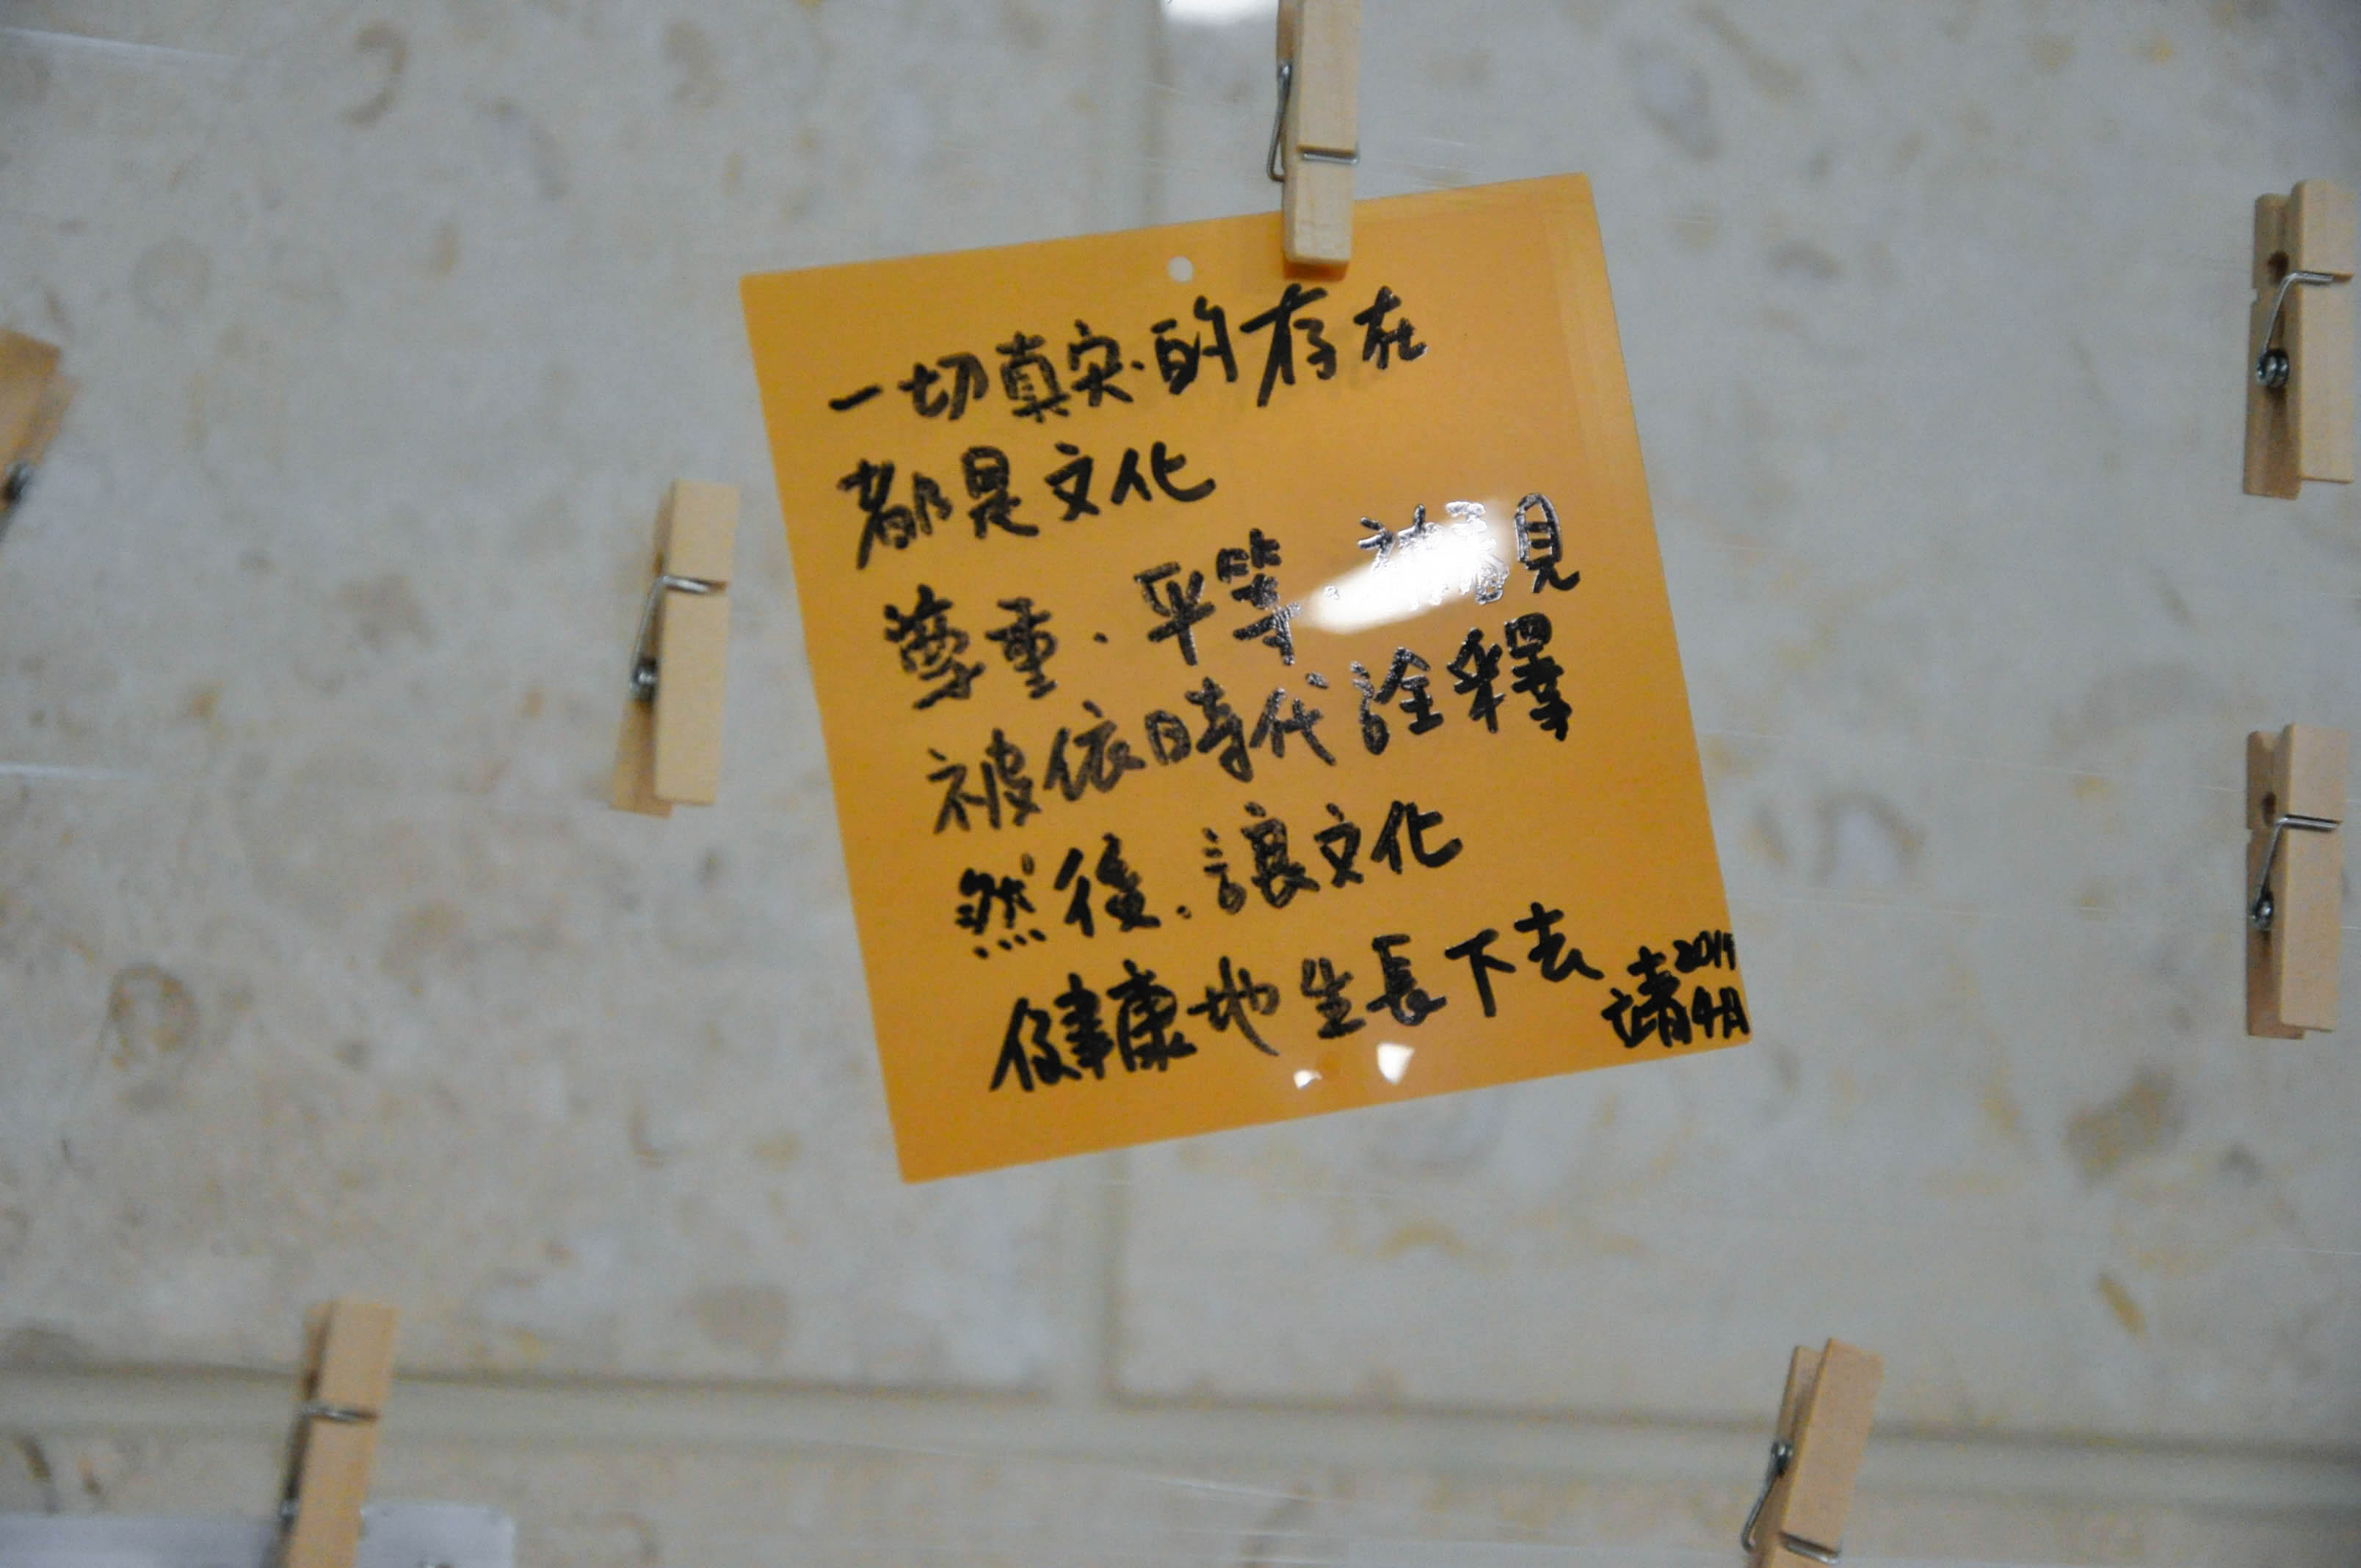 一切真实的存在
都是文化
尊重.平等.被看見
被依時代詮釋
然後.讓文化
健康地生長下去
2019
靖4月